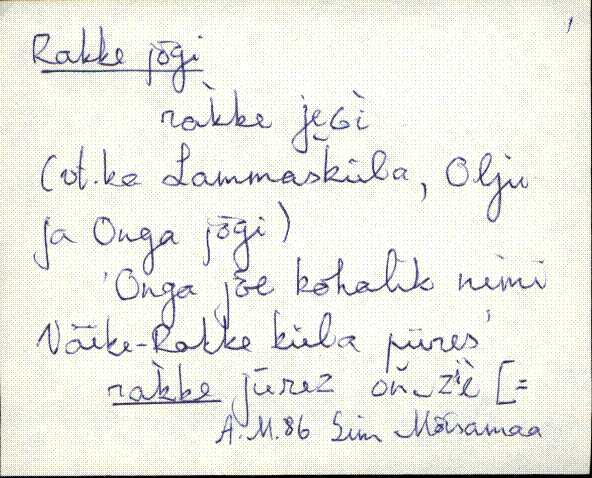 1
Rakke jõgi
ràkke je̮Gì
(vt.ka Lammasküla, Olju
ja Onga jõgi)
'Onga jõe kohalik nimi
Väike-Rakke küla piires'
ràkke jūrez oǹ‿ [=
A.M.86 Sim Mõisamaa